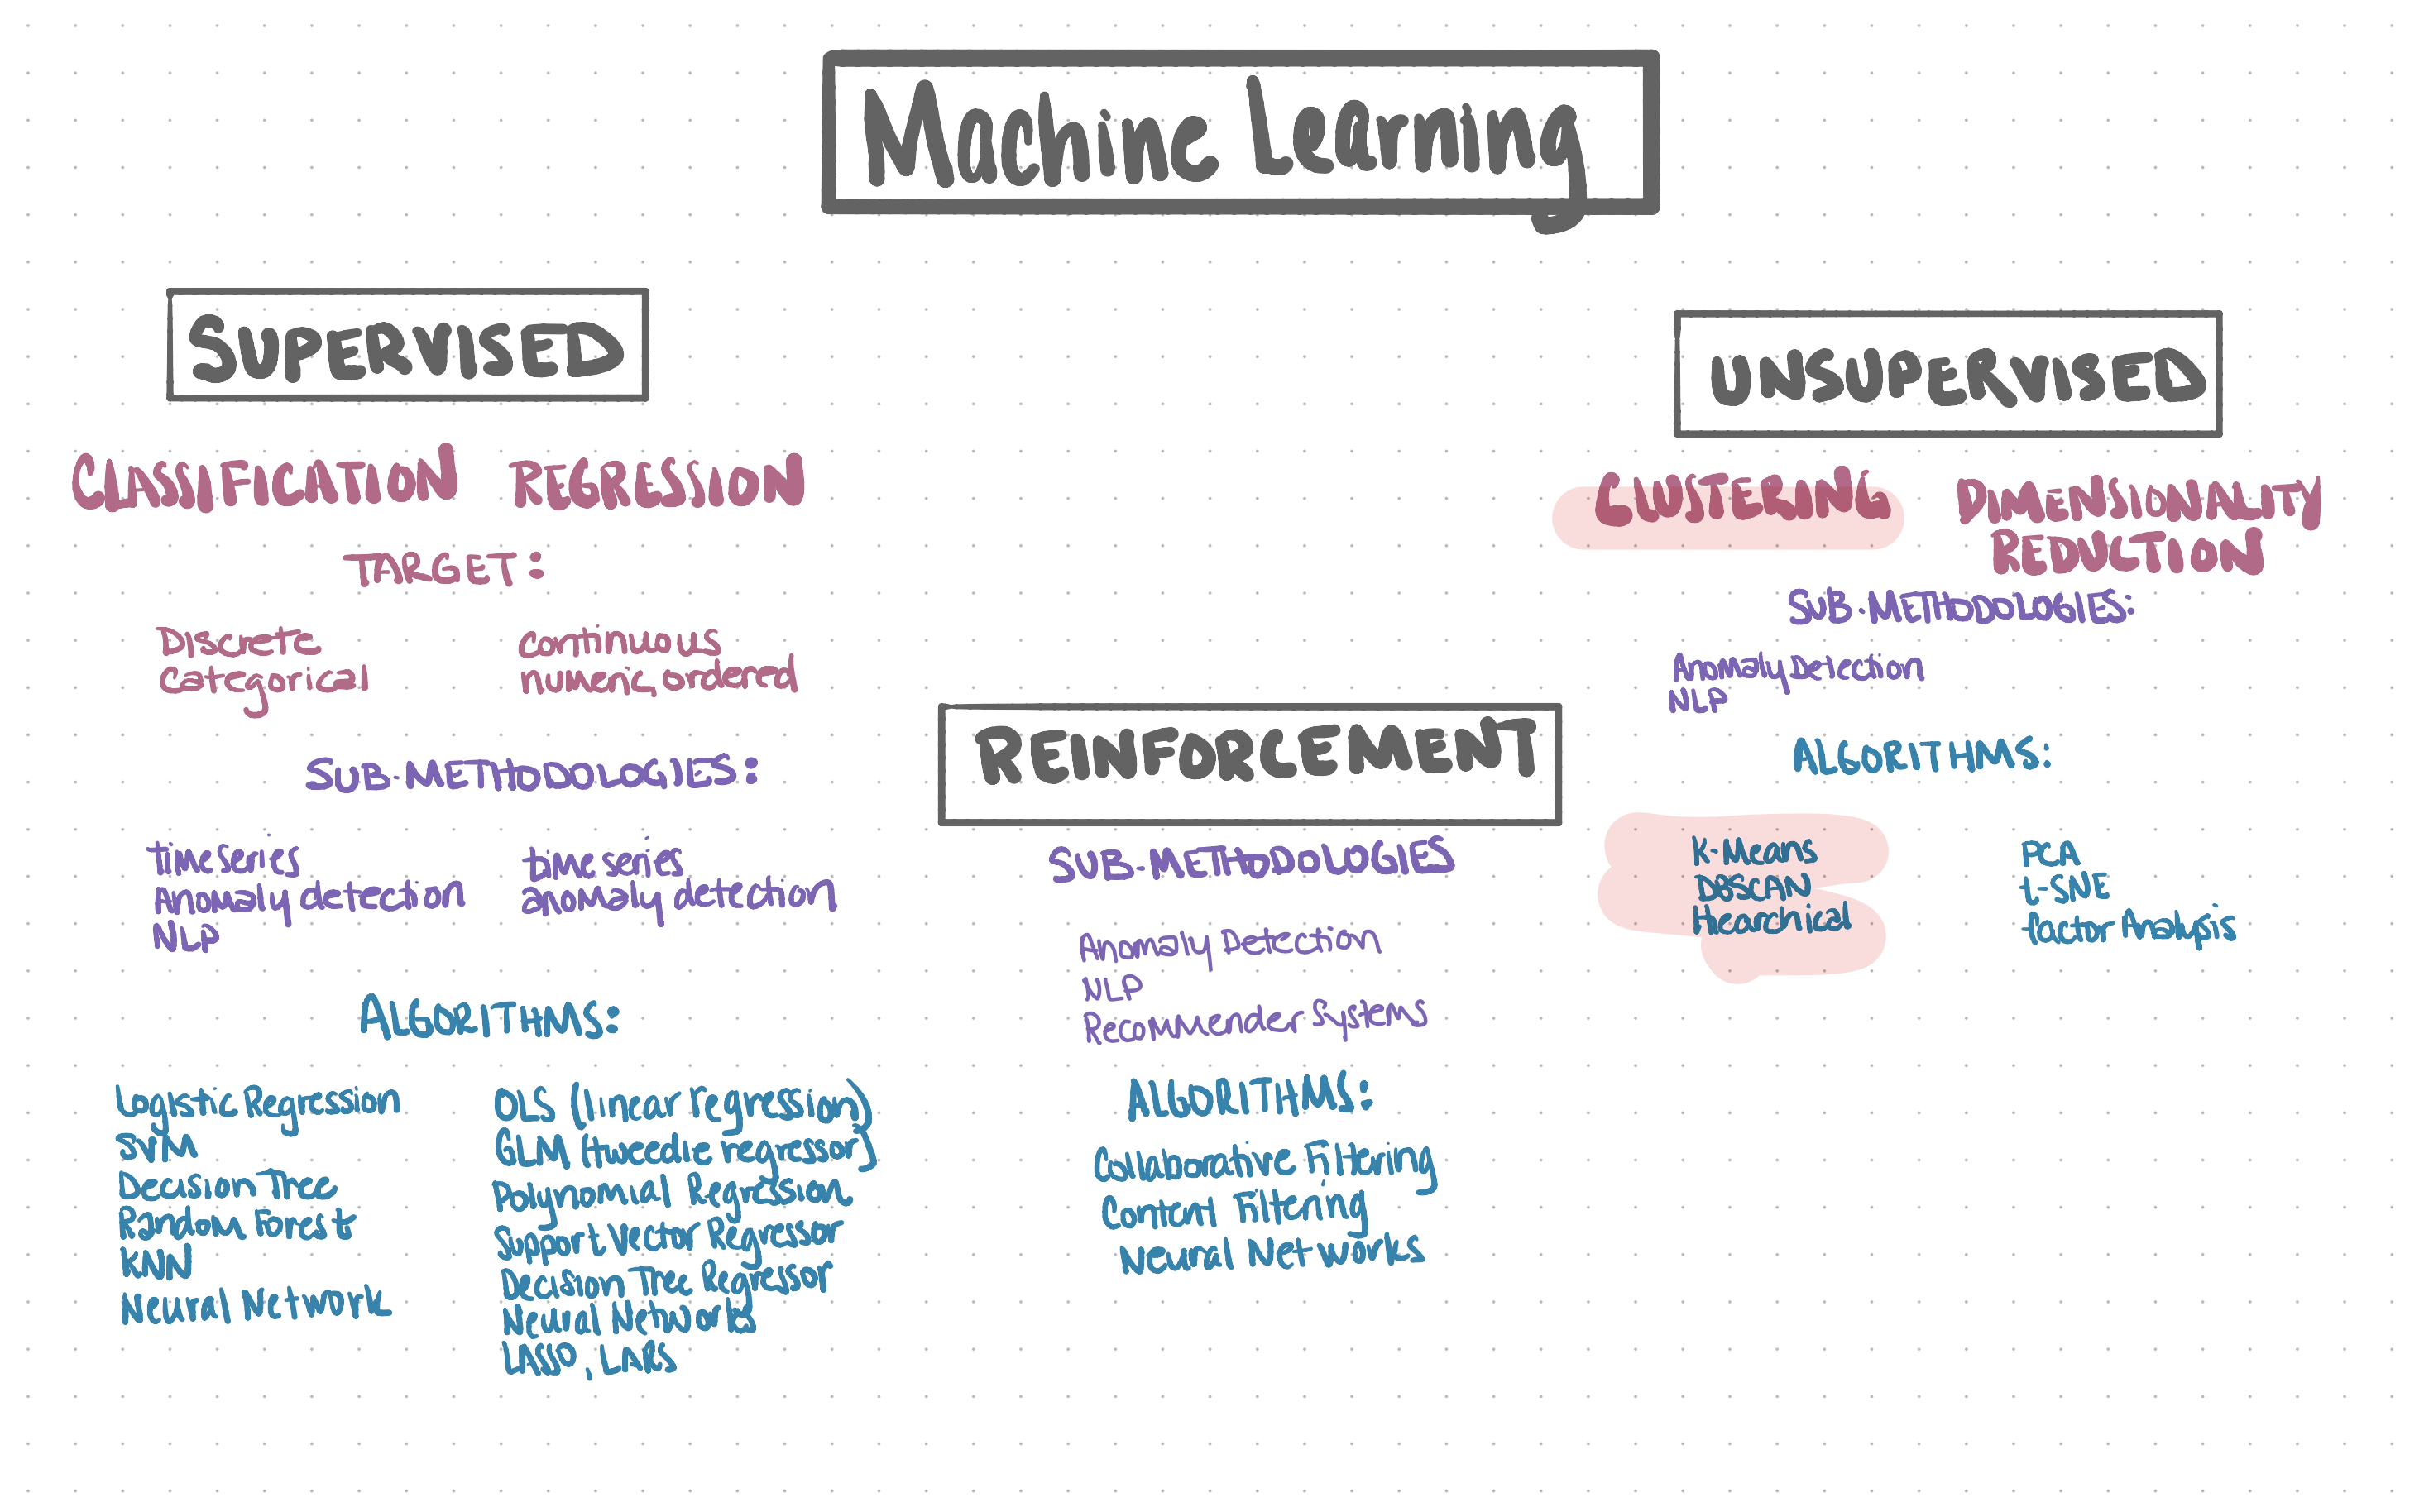 Machine Learning
SUPERVISED
CLASSIFICATION REGRESSION
TARGET:
Discrete
Categorical
continuous
numeric, ordered
SUB-METHODOLOGIES:
time series
Anomaly detection
NLP
time series
anomaly detection
ALGORITHMS:
Logistic Regression
SVM
Decision Tree
Random Forest
KNN
Neural Network
OLS (linear regression)
GLM (tweedie regressor)
Polynomial Regression
Support Vector Regressor
Decision Tree Regressor
Neural Networks
LASSO, LARS
REINFORCEMENT
SUB-METHODOLOGIES
Anomaly Detection
NLP
Recommender Systems
ALGORITHMS:
Collaborative Filtering
Content Filtering
Neural Networks
UNSUPERVISED
CLUSTERING
DIMENSIONALITY
REDUCTION
SUB-METHODOLOGIES:
Anomaly Detection
NLP
ALGORITHMS:
K-Means
DBSCAN
Hearchical
PCA
t-SNE
factor Analysis